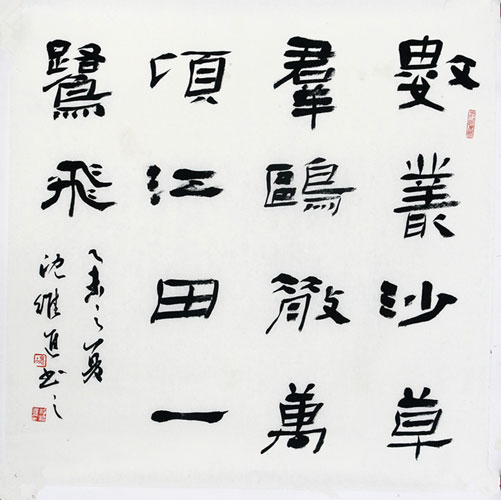 數叢沙草
羣鷗散萬
頃江田一
鷺飛
乙未之夏
沈維進書之